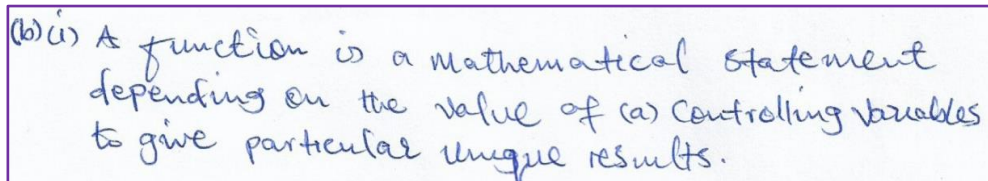 (b)(i) A function is a mathematical statement
depending on the value of (a) Controlling variables
to give particular unique results.